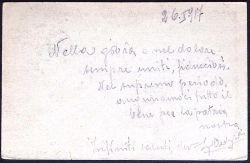 26.5.917
Nella gioia e nel dolore
sempre uniti, fiduciosi.
Nel supremo periodo,
avviciniamoci tutto il
bene per la patria
nostra
Infiniti saluti